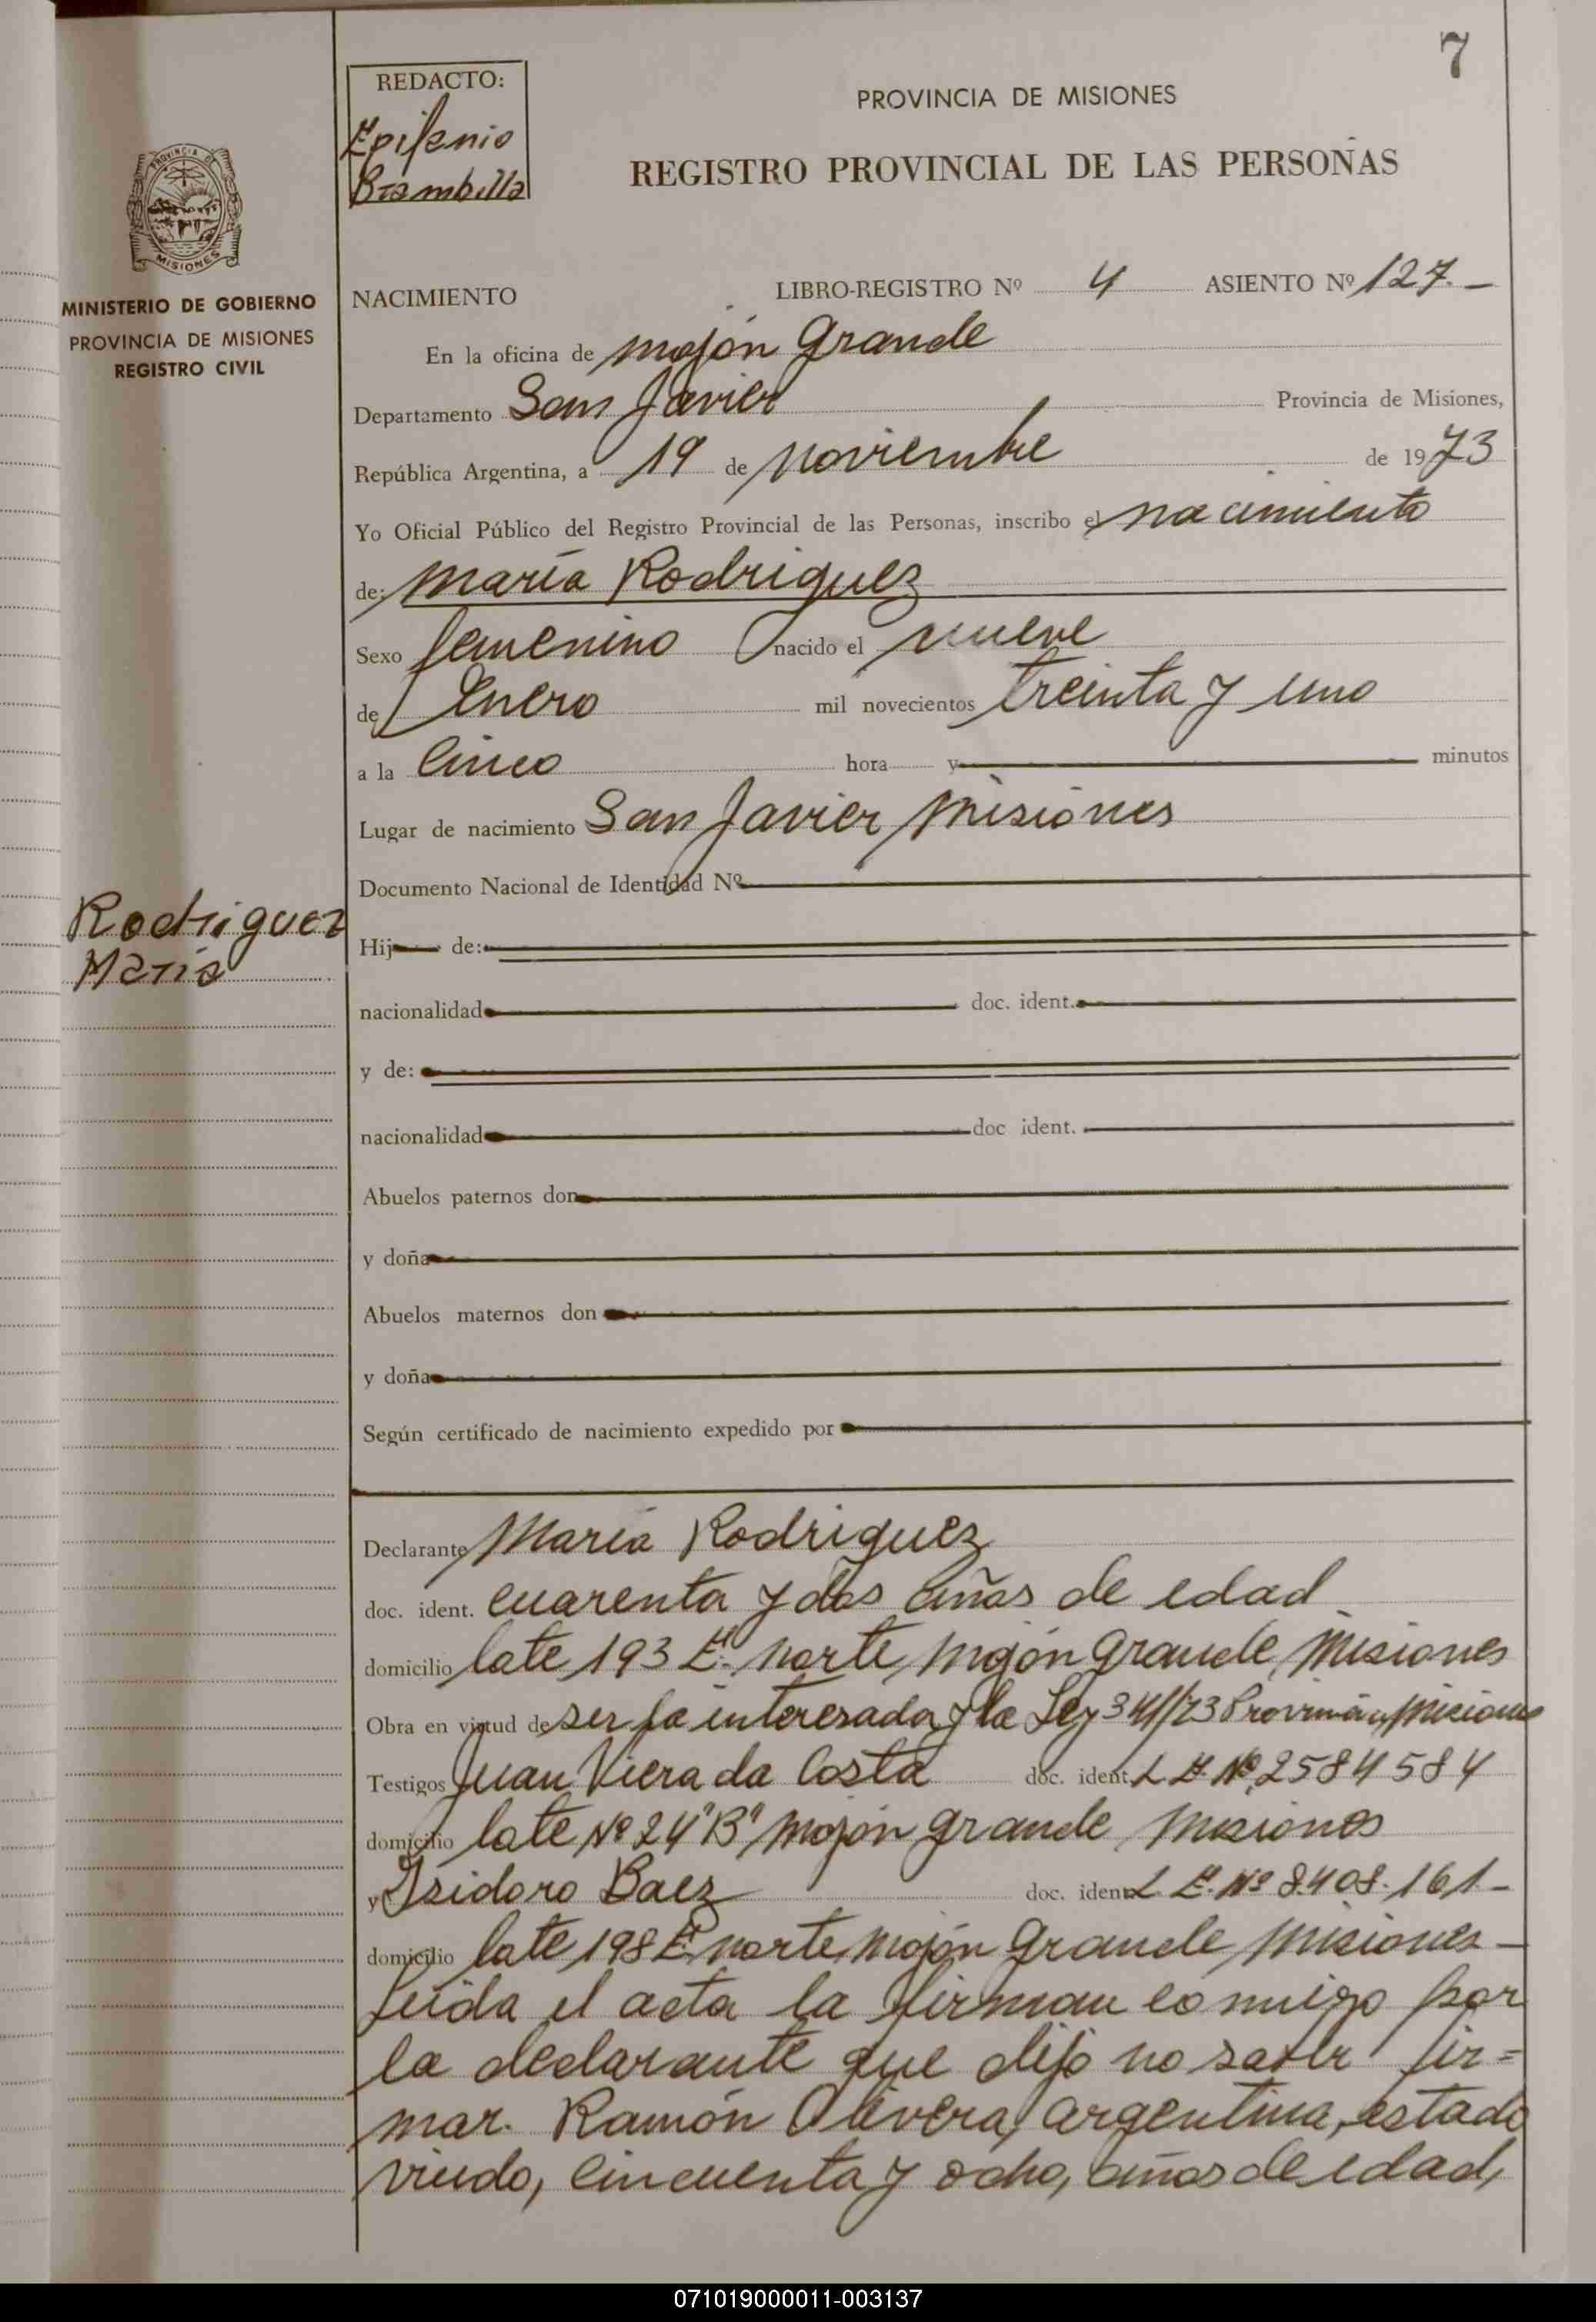 7
REDACTO:
Epifanio
Brambilla
PROVINCIA DE MISIONES
REGISTRO PROVINCIAL DE LAS PERSONAS
PROVINCIA DE
MISIONES
MINISTERIO DE GOBIERNO
PROVINCIA DE MISIONES
REGISTRO CIVIL
NACIMIENTO LIBRO-REGISTRO Nº 4 ASIENTO Nº 127.-
En la oficina de Mojón Grande
Departamento San Javier Provincia de Misiones,
República Argentina, a 19 de noviembre de 1973
Yo Oficial Público del Registro Provincial de las Personas, inscribo el nacimiento
de: María Rodriguez
Sexo femenino nacido el nueve
de Enero mil novecientos treinta y uno
a la Cinco hora y minutos
Lugar de nacimiento San Javier Misiones
Documento Nacional de Identidad Nº
Rodriguez
Maria
Hij de:
nacionalidad doc. ident.
y de:
nacionalidad doc ident.
Abuelos paternos don
y doña
Abuelos maternos don
y doña
Según certificado de nacimiento expedido por
Declarante María Rodriguez
doc. ident. cuarenta y dos años de edad
domicilio lote 193 E. norte, Mojón grande, Misiones
Obra en virtud de ser la interesada y la Ley 341/73 Misiones
Testigos Juan Viera da Costa doc. ident L E. Nº 2584584
domicilio lote Nº 24 "B" Mojón grande Misiones
y Isidoro Baez doc. ident L E. Nº 8.408.161-
domicilio lote 198 E. norte, Mojón Grande Misiones-
leida el acta la firman comigo por
la declarante que dijo no saber fir=
mar. Ramón Olivera, argentina, estado
viudo, cincuenta y ocho, años de edad,
071019000011-003137